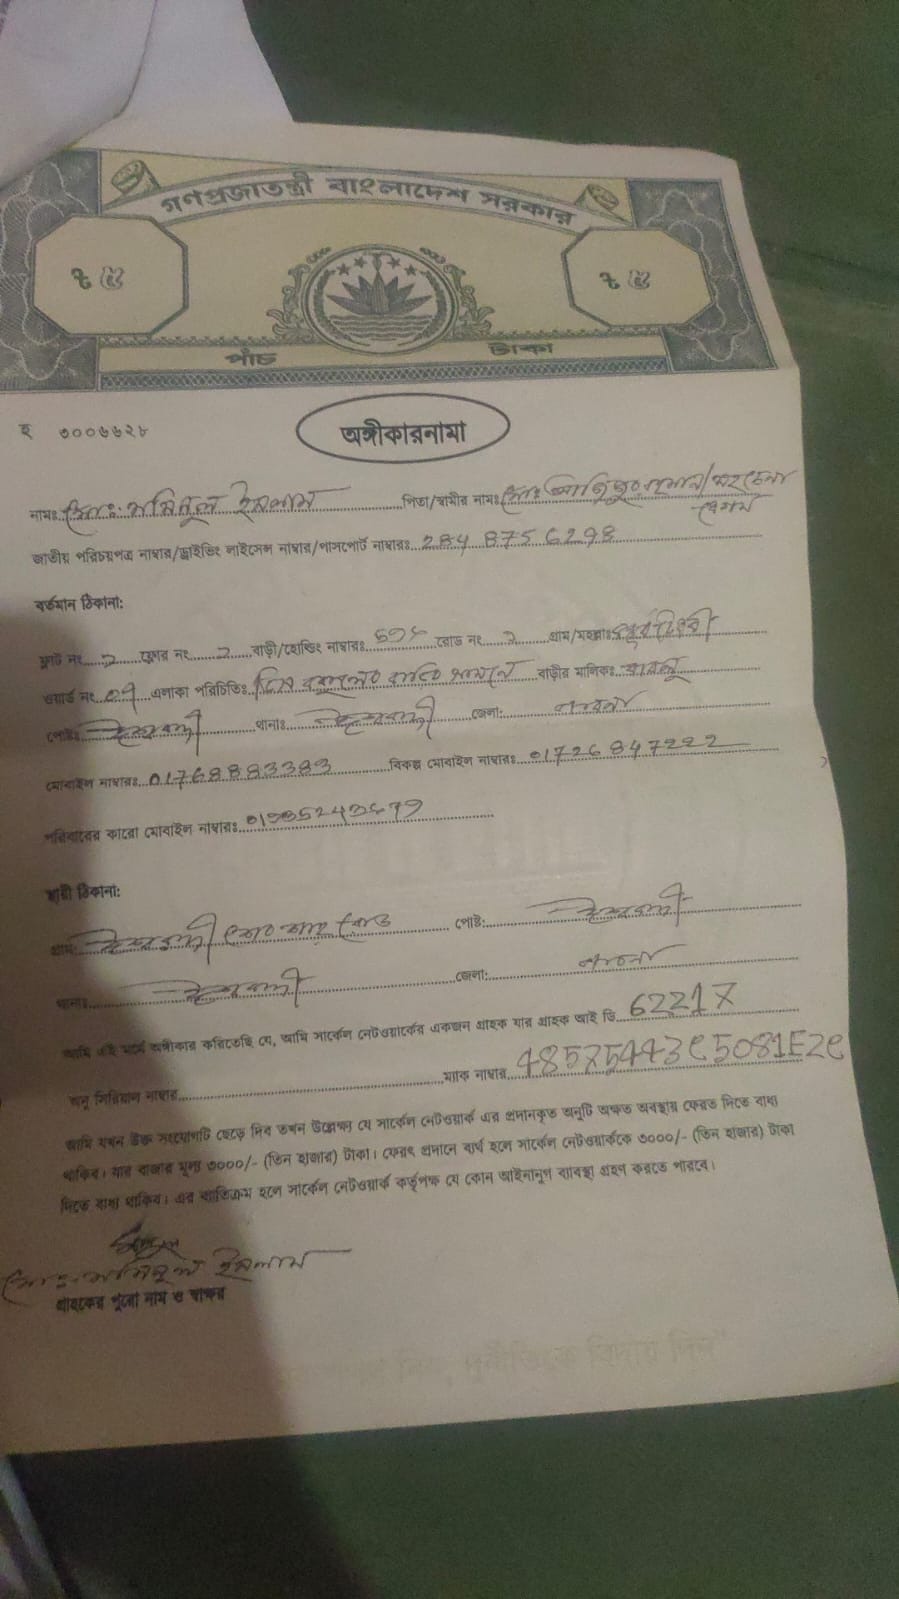 গণপ্রজাতন্ত্রী বাংলাদেশ সরকার
৳ ৫ ৳ ৫
পাঁচ টাকা
হ ৩০০৬৬২৮
অঙ্গীকারনামা
নামঃ মোঃ মমিনুল ইসলাম পিতা/স্বামীর নামঃ মোঃ
বেগম
জাতীয় পরিচয়পত্র নাম্বার/ড্রাইভিং লাইসেন্স নাম্বার/পাসপোর্ট নাম্বারঃ 284 875 6298
বর্তমান ঠিকানা:
ফ্লাট নং ২ ফ্লোর নং ২ বাড়ী/হোল্ডিং নাম্বারঃ রোড নং ২ গ্রাম/মহল্লাঃ
ওয়ার্ড নং 07 এলাকা পরিচিতিঃ সামনে বাড়ীর মালিকঃ বাবলু
পোষ্টঃ ঈশ্বরদী থানাঃ ঈশ্বরদী জেলা: পাবনা
মোবাইল নাম্বারঃ 01768883383 বিকল্প মোবাইল নাম্বারঃ 01726847222
পরিবারের কারো মোবাইল নাম্বারঃ
স্থায়ী ঠিকানা:
গ্রামঃ ঈশ্বরদী রোড পোষ্ট: ঈশ্বরদী
থানাঃ ঈশ্বরদী জেলা: পাবনা
আমি এই মর্মে অঙ্গীকার করিতেছি যে, আমি সার্কেল নেটওয়ার্কের একজন গ্রাহক যার গ্রাহক আই ডি 62217
অনু সিরিয়াল নাম্বার ম্যাক নাম্বার 48575443e5081E2e
আমি যখন উক্ত সংযোগটি ছেড়ে দিব তখন উল্লেক্ষ্য যে সার্কেল নেটওয়ার্ক এর প্রদানকৃত অনুটি অক্ষত অবস্থায় ফেরত দিতে বাধ্য
থাকিব। যার বাজার মূল্য ৩০০০/- (তিন হাজার) টাকা। ফেরৎ প্রদানে ব্যর্থ হলে সার্কেল নেটওয়ার্ককে ৩০০০/- (তিন হাজার) টাকা
দিতে বাধ্য থাকিব। এর ব্যতিক্রম হলে সার্কেল নেটওয়ার্ক কর্তৃপক্ষ যে কোন আইনানুগ ব্যাবস্থা গ্রহণ করতে পারবে।
মোঃ মমিনুল ইসলাম
গ্রাহকের পুরো নাম ও স্বাক্ষর